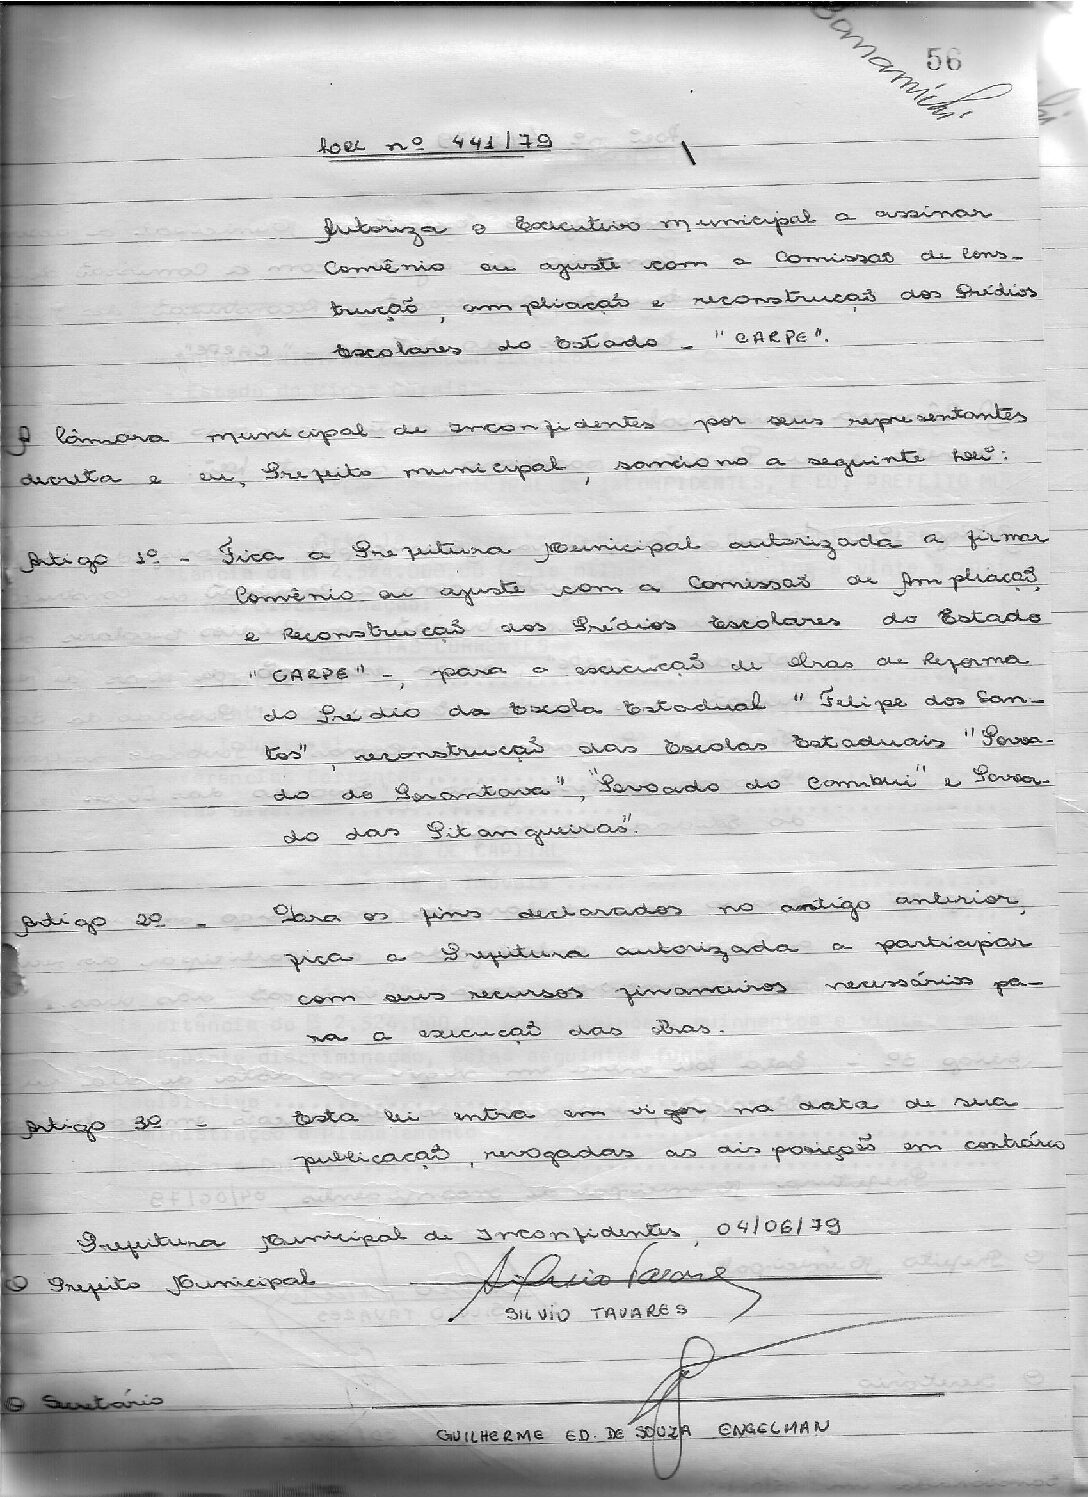 56
Lei nº 441/79
Autoriza o Executivo Municipal a assinar
Convênio ou ajuste com a Comissão de Cons-
trução, ampliação e reconstrução dos Prédios
Escolares do Estado - "CARPE".
A Câmara Municipal de Inconfidentes por seus representantes
decreta e eu, Prefeito Municipal, sanciono a seguinte Lei:
Artigo 1º - Fica a Prefeitura Municipal autorizada a firmar
Convênio ou ajuste com a Comissão de Ampliação
e Reconstrução dos Prédios Escolares do Estado
"CARPE" -, para a execução de obras de Reforma
do Prédio da Escola Estadual "Felipe dos San-
tos", reconstrução das Escolas Estaduais "Povoa-
do do Perantava", "Povoado do Cambuí" e Povoa-
do das Pitangueiras".
Artigo 2º - Para os fins declarados no artigo anterior,
fica a Prefeitura autorizada a participar
com seus recursos financeiros necessários pa-
ra a execução das obras.
Artigo 3º - Esta lei entra em vigor na data de sua
publicação, revogadas as disposições em contrário
Prefeitura Municipal de Inconfidentes, 04/06/79
O Prefeito Municipal Silvio Tavares
SILVIO TAVARES
O Secretário
GUILHERME ED. DE SOUZA ENGELMAN